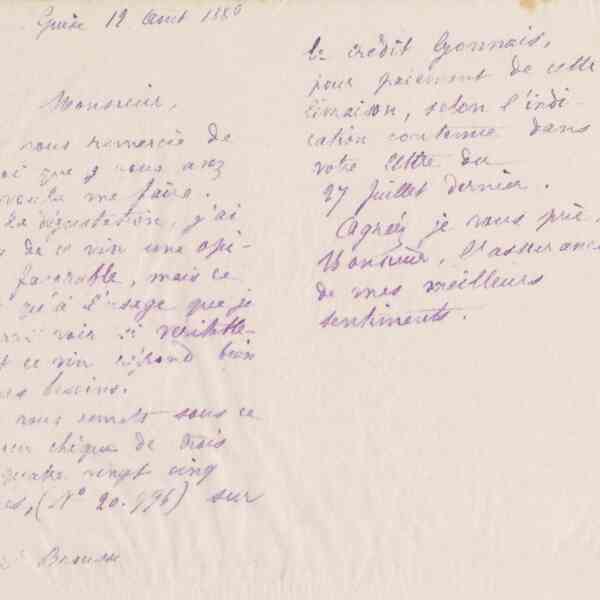 Guise 12 Août 1886
Monsieur,
vous remercie de
que vous avez
voulu me faire.
la dégustation, j'ai
de ce vin une opi-
favorable, mais ce
qu'à l'usage que je
voir si véritable-
ce vin répond bien
besoins.
vous remets sous ce
chèque de trois
quatre vingt cinq
(N° 20.996) sur
le Crédit Lyonnais,
pour paiement de cette
livraison, selon l'indi-
cation contenue dans
votre lettre du
27 Juillet dernier.
Agréez je vous prie,
Monsieur, l'assurance
de mes meilleurs
sentiments.